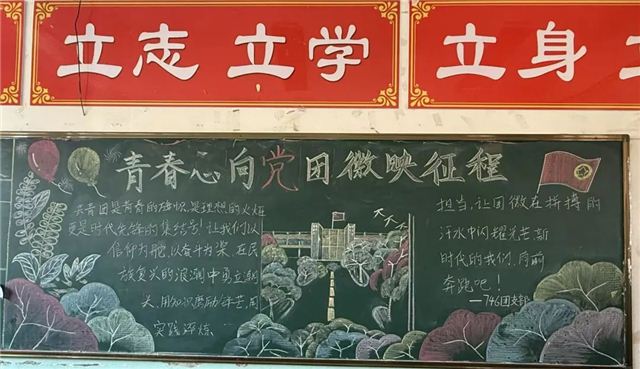 立志 立学
立身
青春心向党 团徽映征程
共青团是青春的旗帜,是理想的火炬
更是时代先锋的集结号!让我们以
信仰为舵,以奋斗为桨,在民
族复兴的浪潮中勇立潮
头,用知识 用
实践淬炼
担当,让团徽在拼搏的
汗水中闪耀光芒新
时代的我们,向前
奔跑吧!
——746团支部